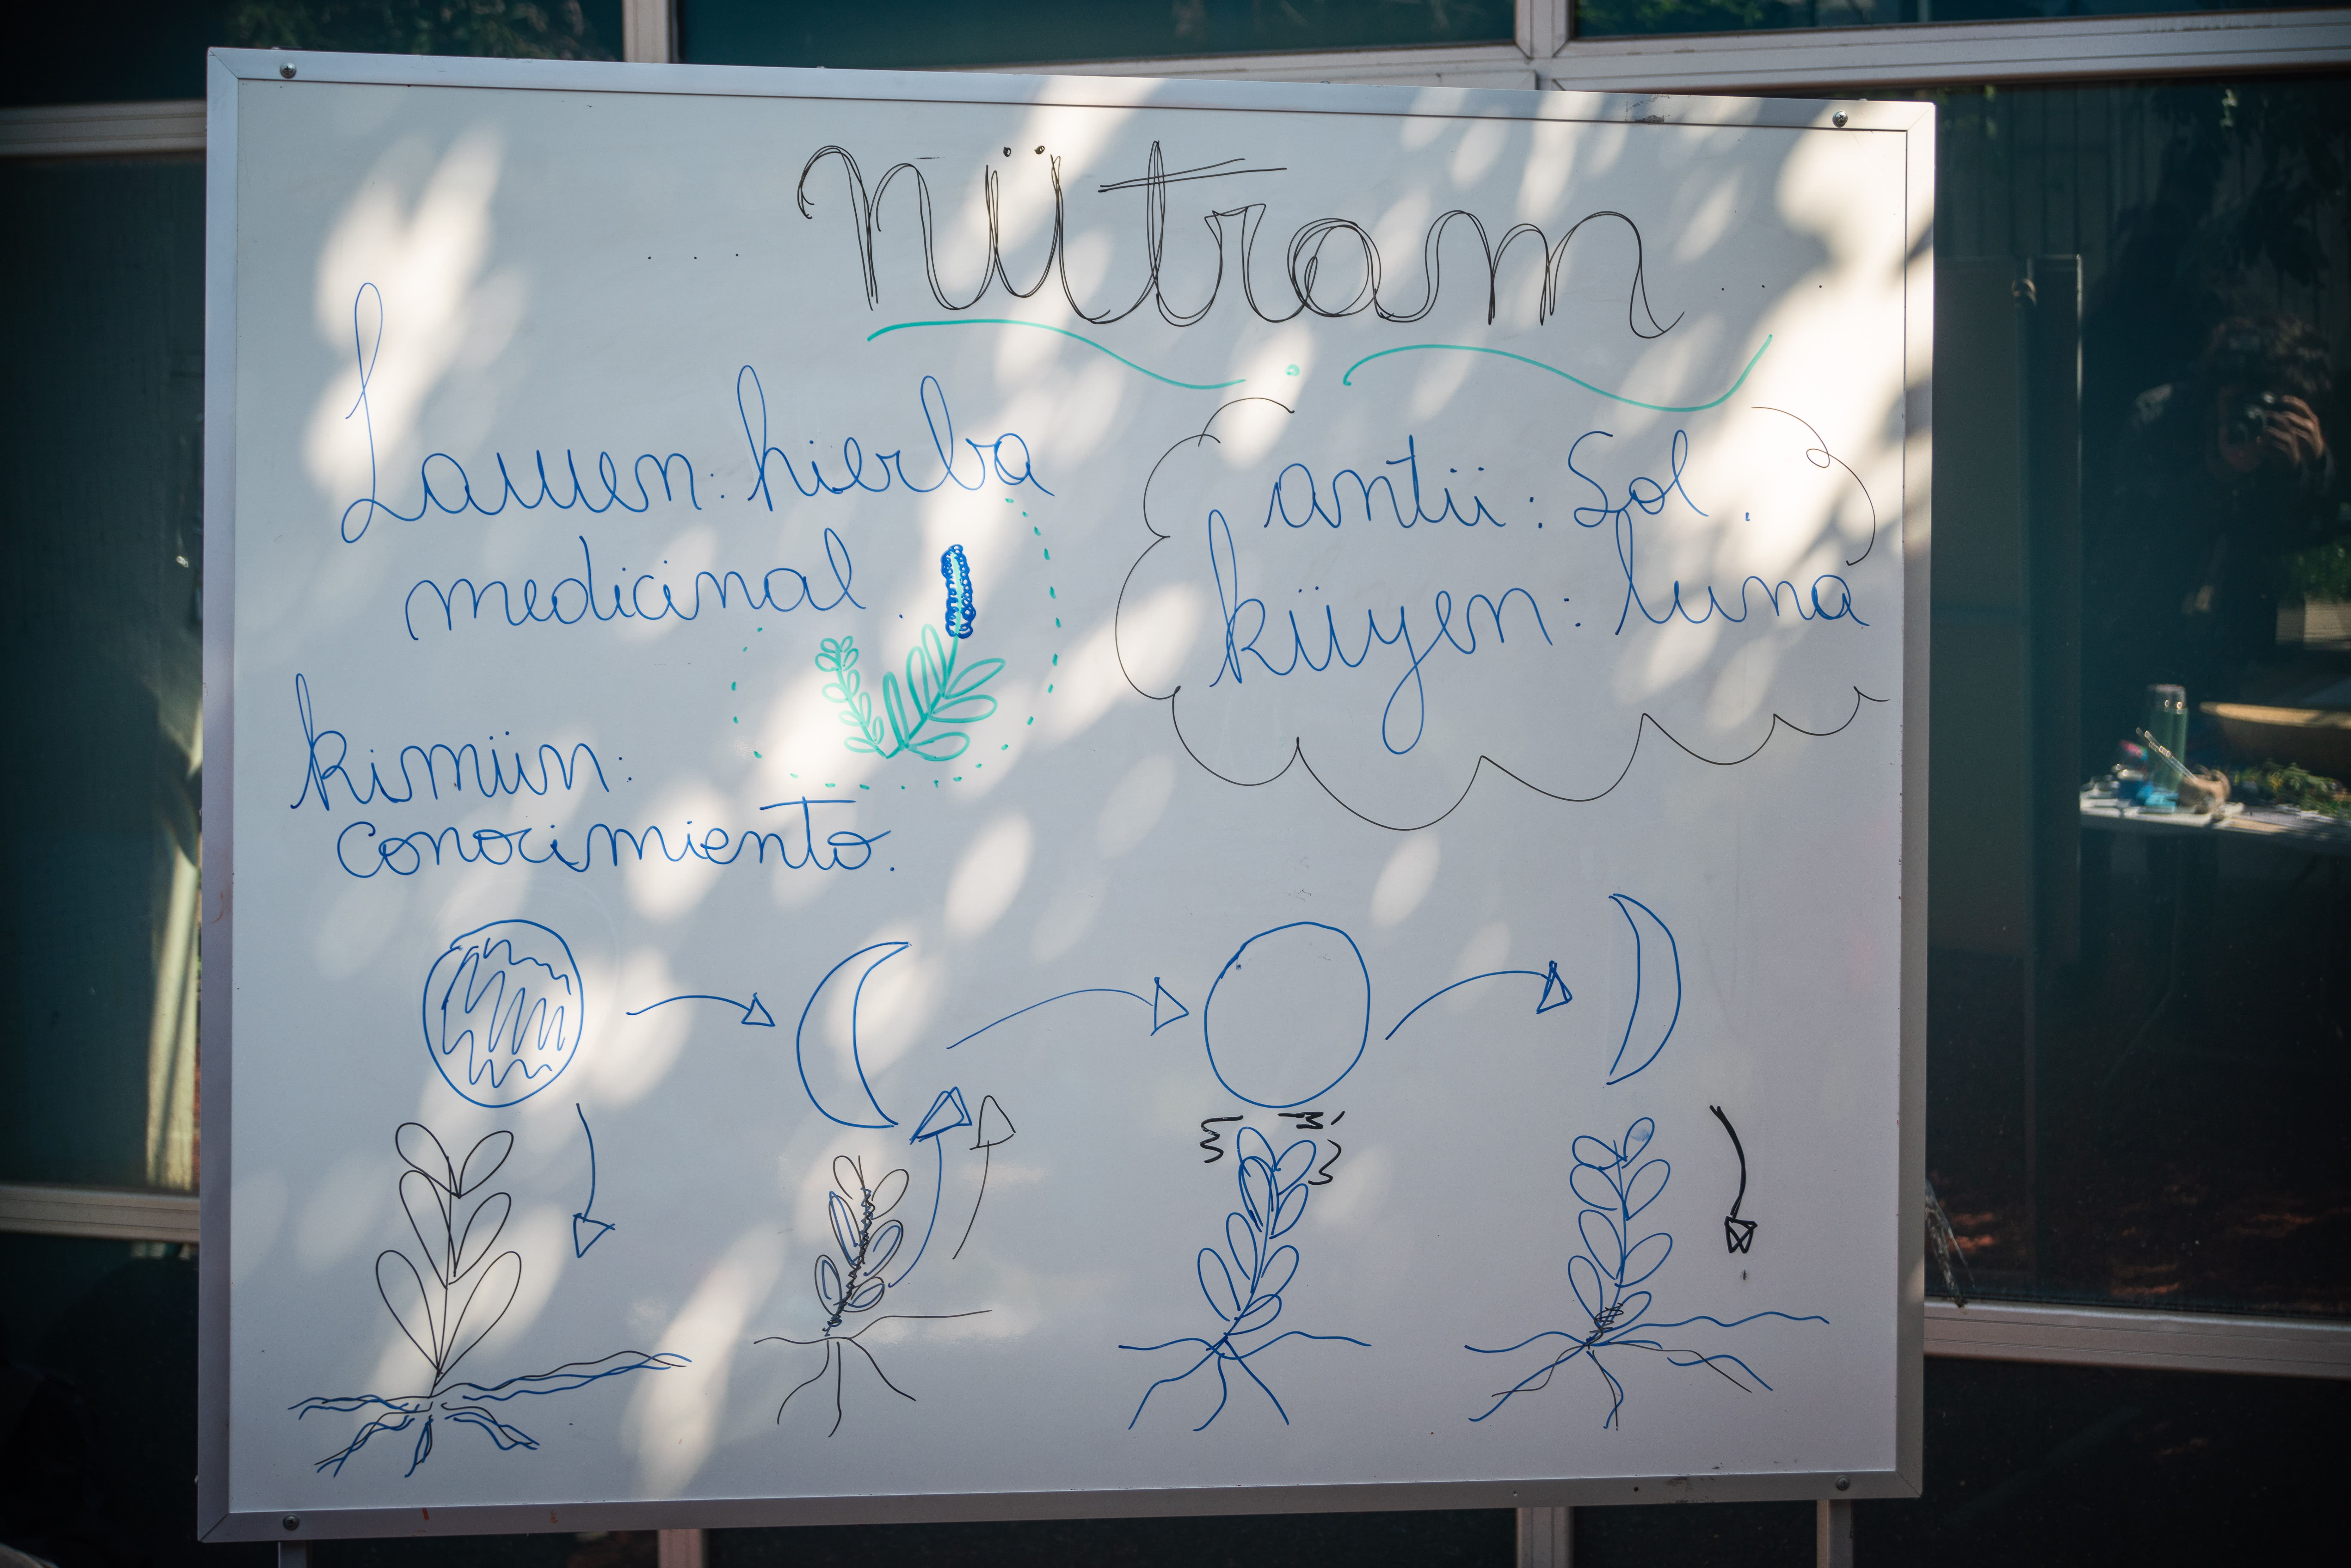 nütram
Lawen: hierba
medicinal.
kimün:
conocimiento.
antü: Sol.
küyen: luna